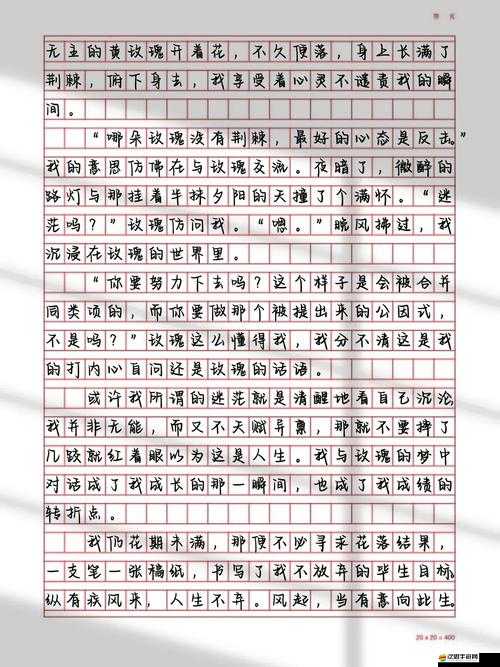 无主的黄玫瑰开着花，不久便落，身上长满了
荆棘，俯下身去，我享受着心灵不谴责我的瞬
间。
“哪朵玫瑰没有荆棘，最好的心态是反击。”
我的意思仿佛在与玫瑰交流。夜暗了，微醉的
路灯与那挂着牛抹夕阳的天撞了个满怀。“迷
茫吗？”玫瑰仿问我。“嗯。”晚风拂过，我
沉浸在玫瑰的世界里。
“你要努力下去吗？这个样子是会被合并
同类项的，而你要做那个被提出来的公因式，
不是吗？”玫瑰这么懂得我，我分不清这是我
的打内心自问还是玫瑰的话语。
或许我所谓的迷茫就是清醒地看自己沉沦，
我并非无能，而又不天赋异禀，那就不要摔了
几跤就红着眼以为这是人生。我与玫瑰的梦中
对话成了我成长的那一瞬间，也成了我成绩的
转折点。
我仍花期未满，那便不必寻求花落结果，
一支笔一张稿纸，书写了我不放弃的毕生目标。
纵有疾风来，人生不弃。风起，当有意向此生。
20 x 20 = 400